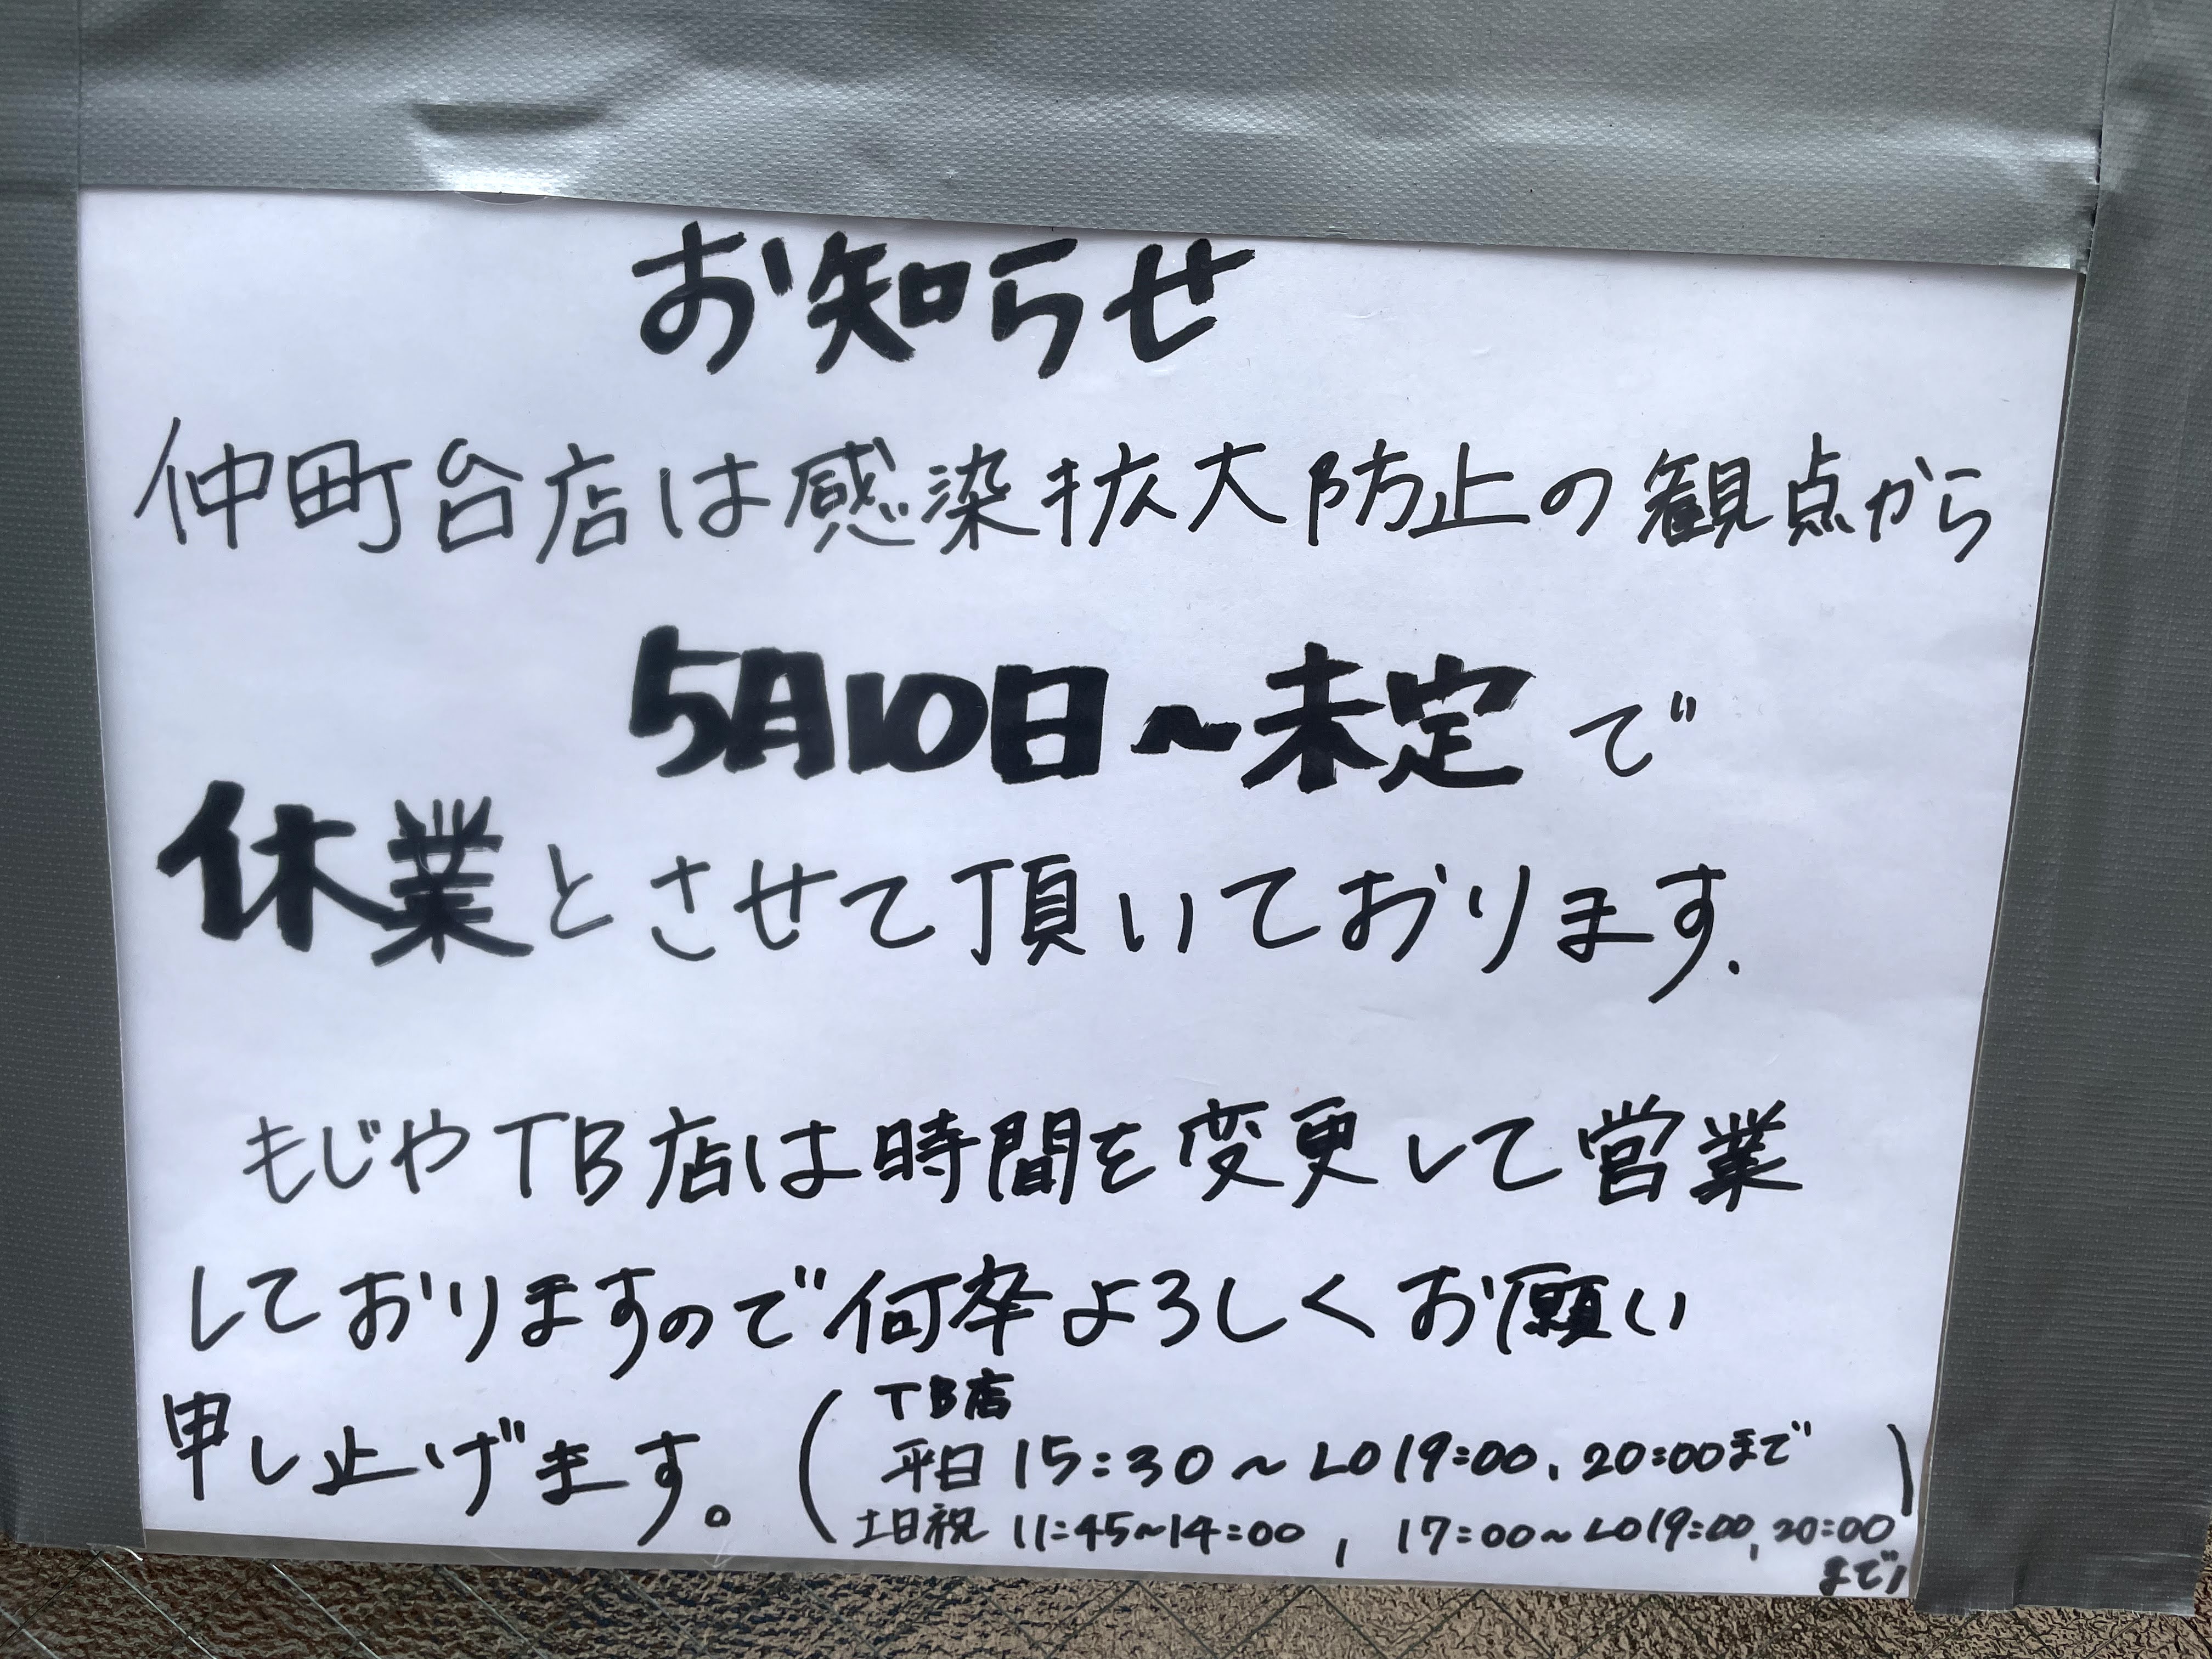 お知らせ
仲町台店は感染拡大防止の観点から
5月10日～未定で
休業とさせて頂いております.
もじやTB店は時間を変更して営業
しておりますので何卒よろしくお願い
申し上げます。
(TB店
平日 15:30～LO19:00. 20:00まで
土日祝 11:45～14:00, 17:00～LO19:00, 20:00
まで)